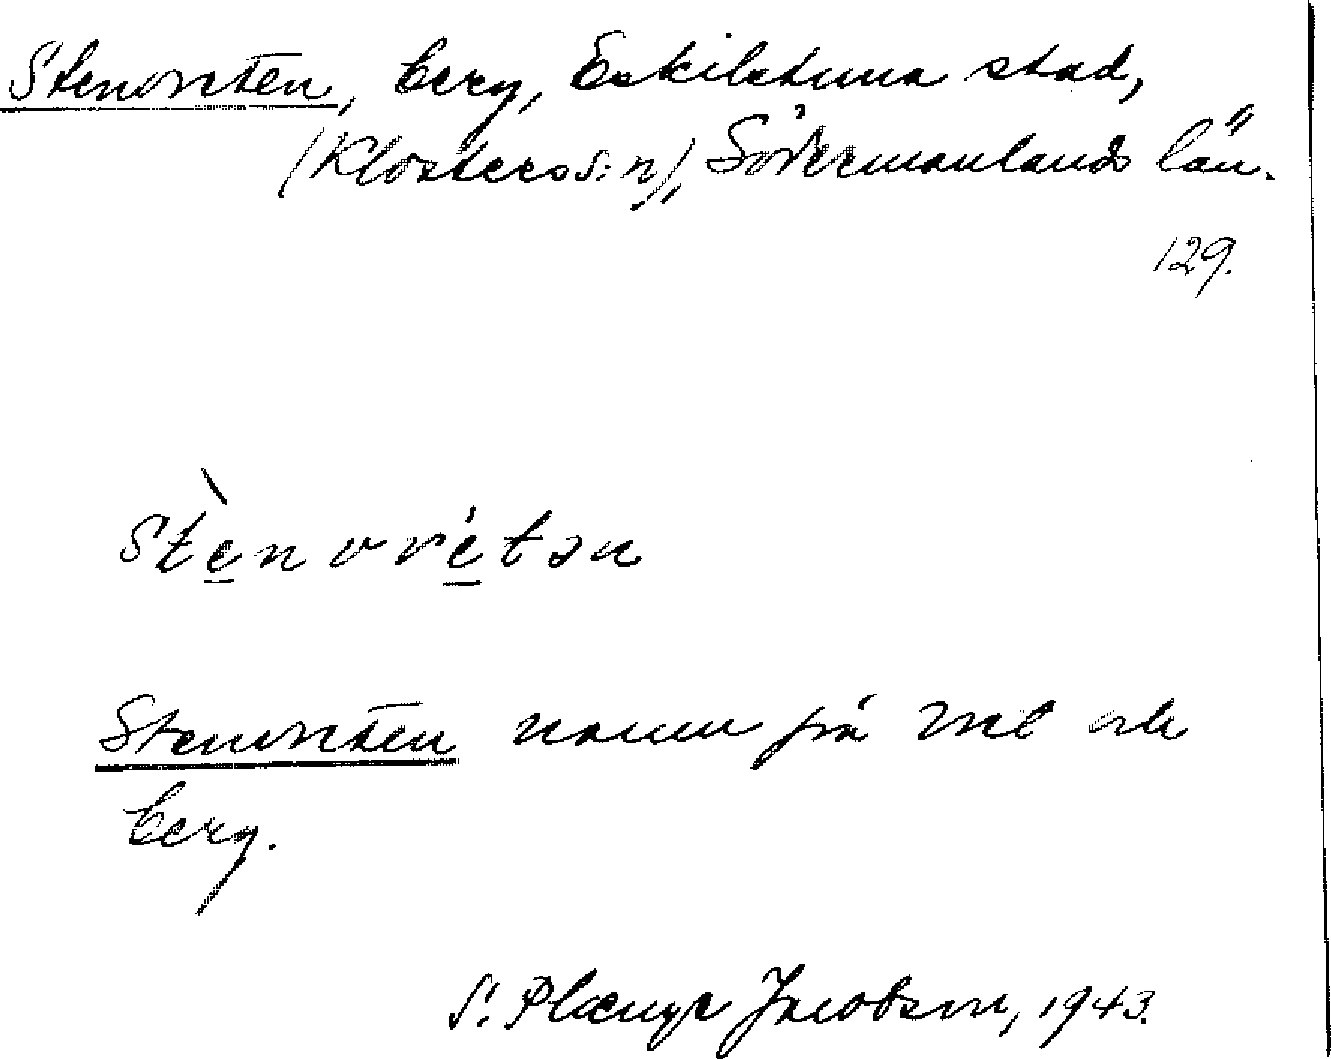 Stenvreten, berg, Eskilstuna stad,
(Klosters s:n), Södermanlands län.
129.
stènvrétən
Stenvreten namn på vret och
berg.
S. Jacobson, 1943.